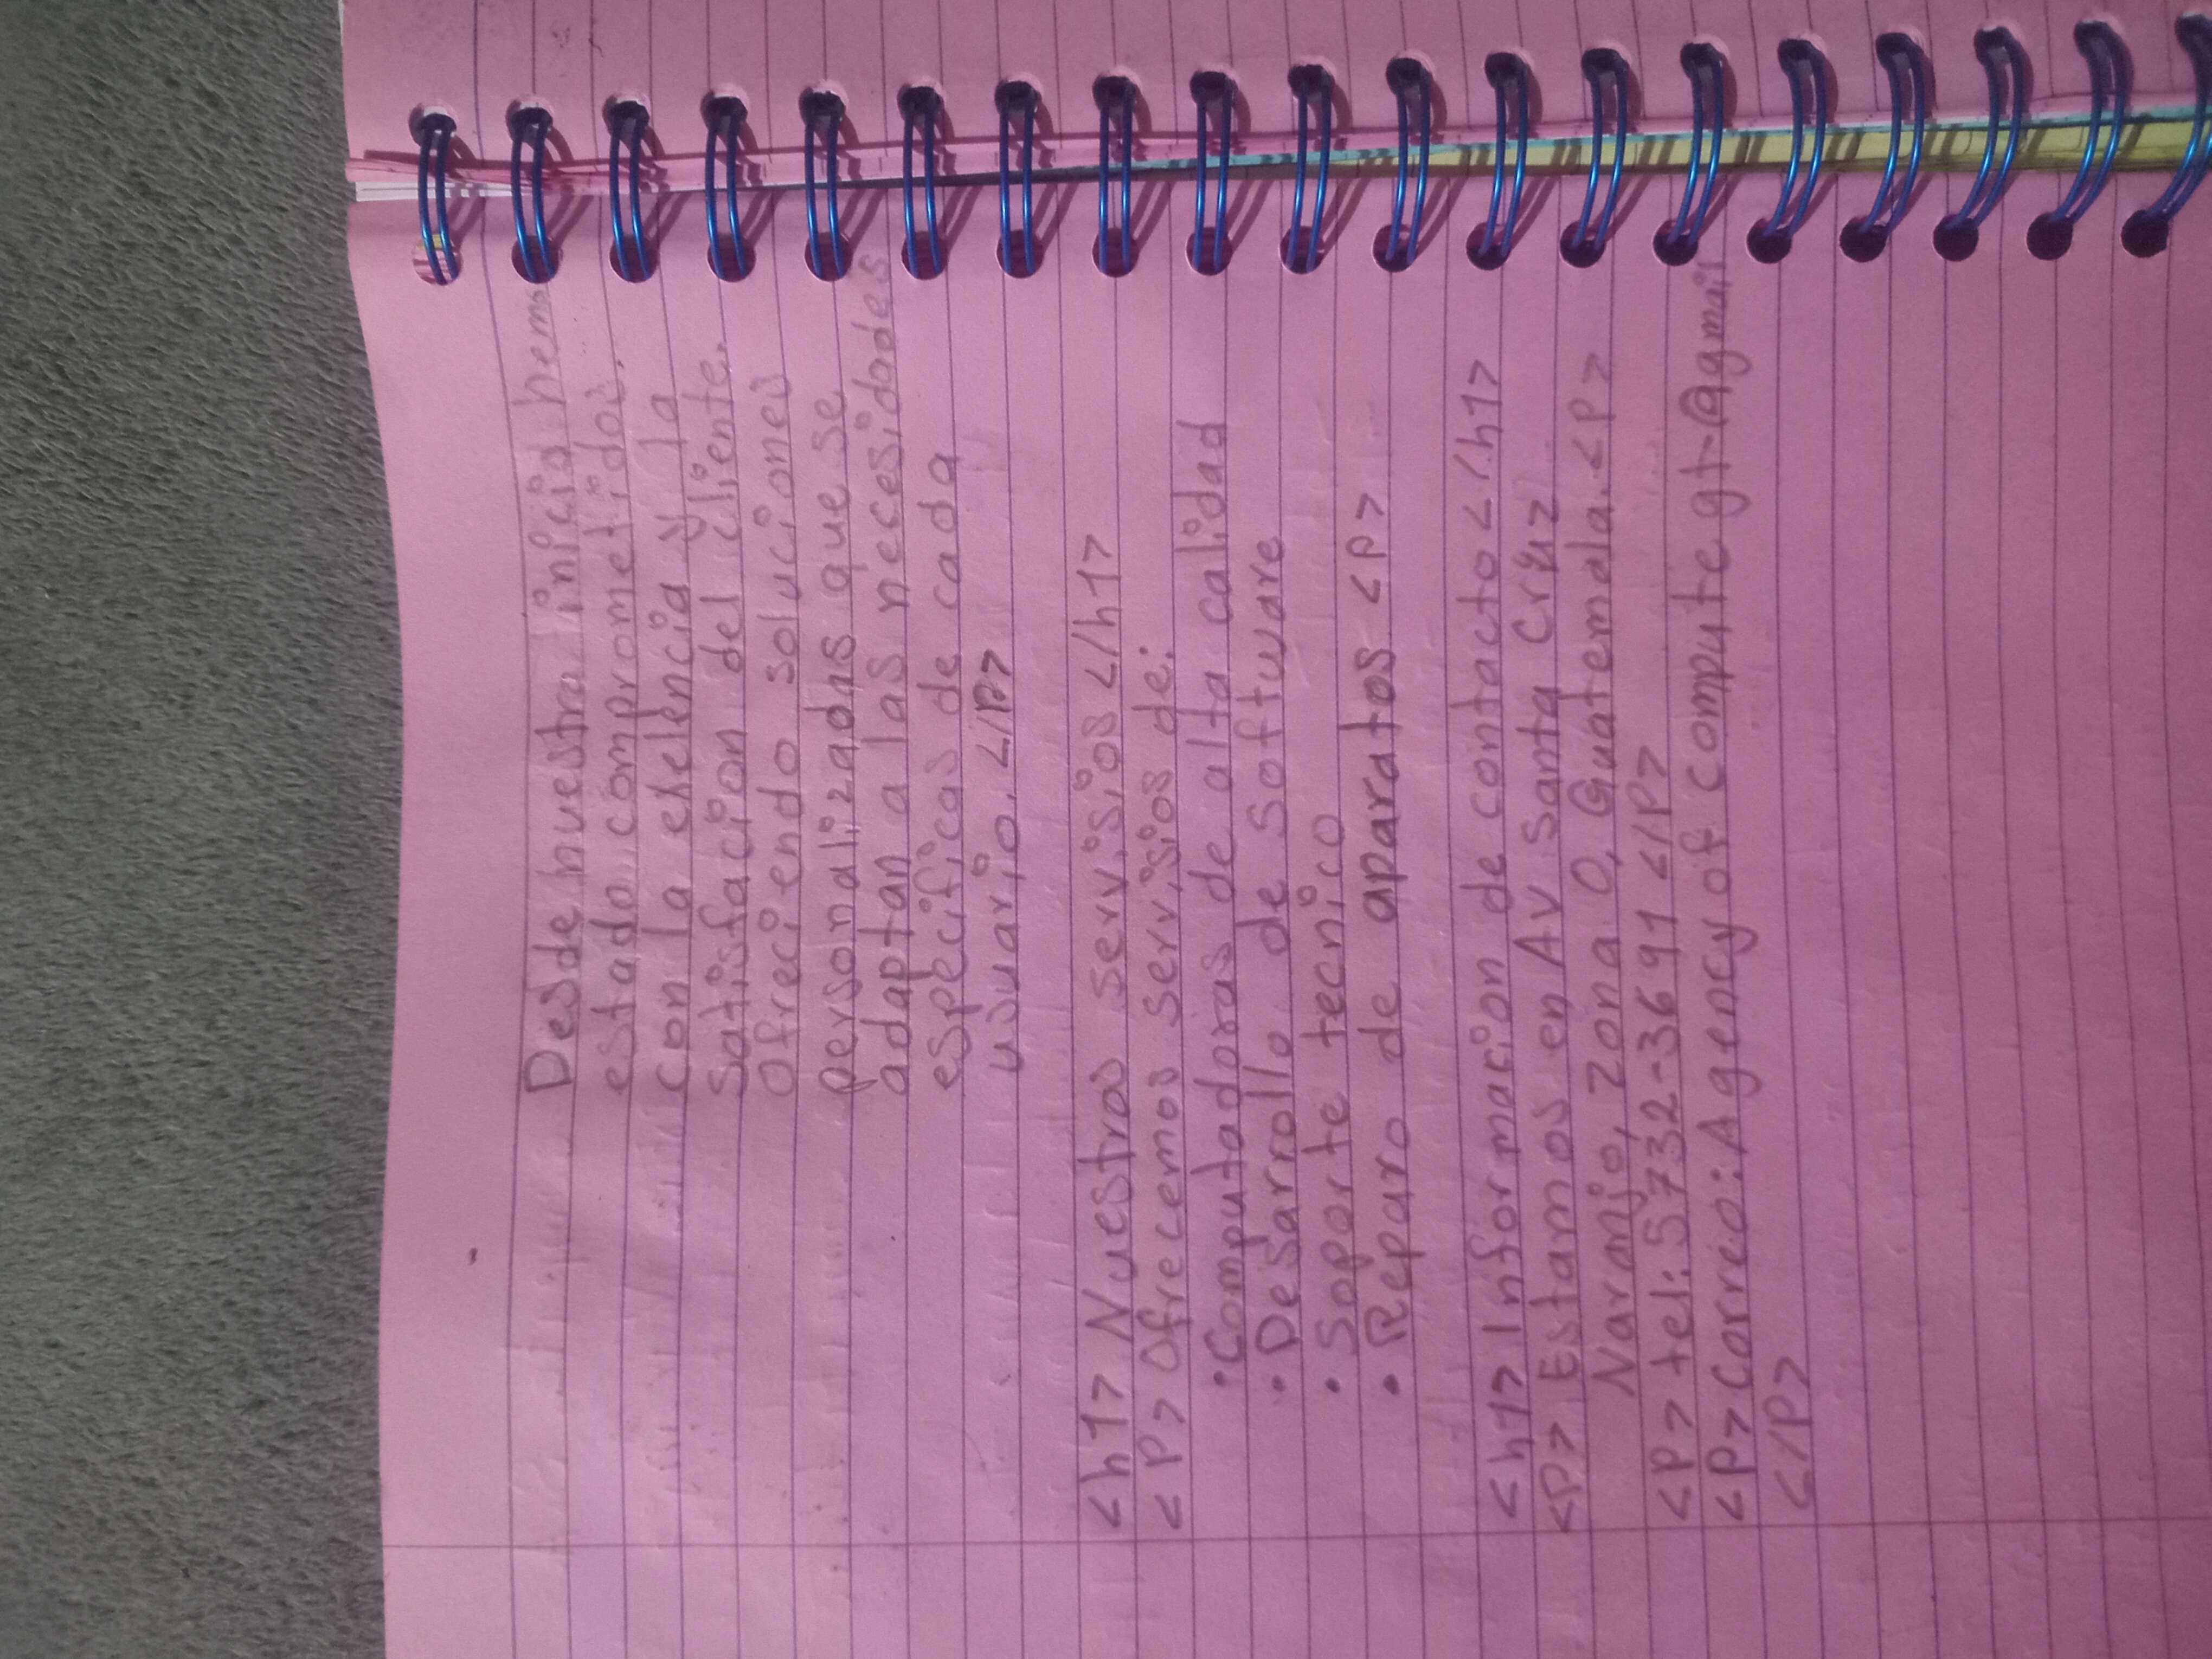 Desde nuestra inicio hem
estado comprometidos.
con la exelencia y la
satisfacion del cliente.
Ofreciendo soluciones
personalizadas que se
adaptan a las necesidades
especificas de cada
usuario. </P>
<h1> Nuestros servisios </h1>
<P> Ofrecemos servisios de:
• Computadoras de alta calidad
• Desarrollo de software
• Soporte tecnico
• Reparo de aparatos <P>
<h1> Informacion de contacto </h1>
<P> Estamos en AV Santa Cruz
Naranjo, zona 0, Guatemala. <P>
<P> tel: 5732-3691 </P>
<P> Correo: Agency of compute gt-@gmail
</P>